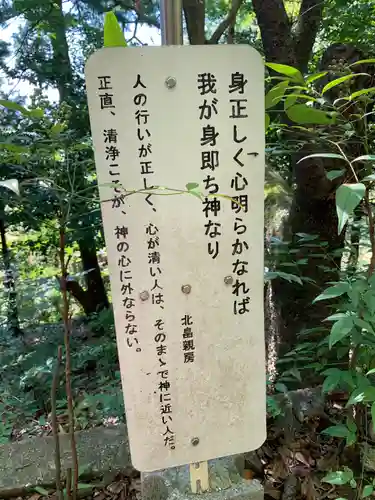 身正しく心明らかなれば
我が身即ち神なり
北畠親房
人の行いが正しく、心が清い人は、そのまゝで神に近い人だ。
正直、清浄こそが、神の心に外ならない。